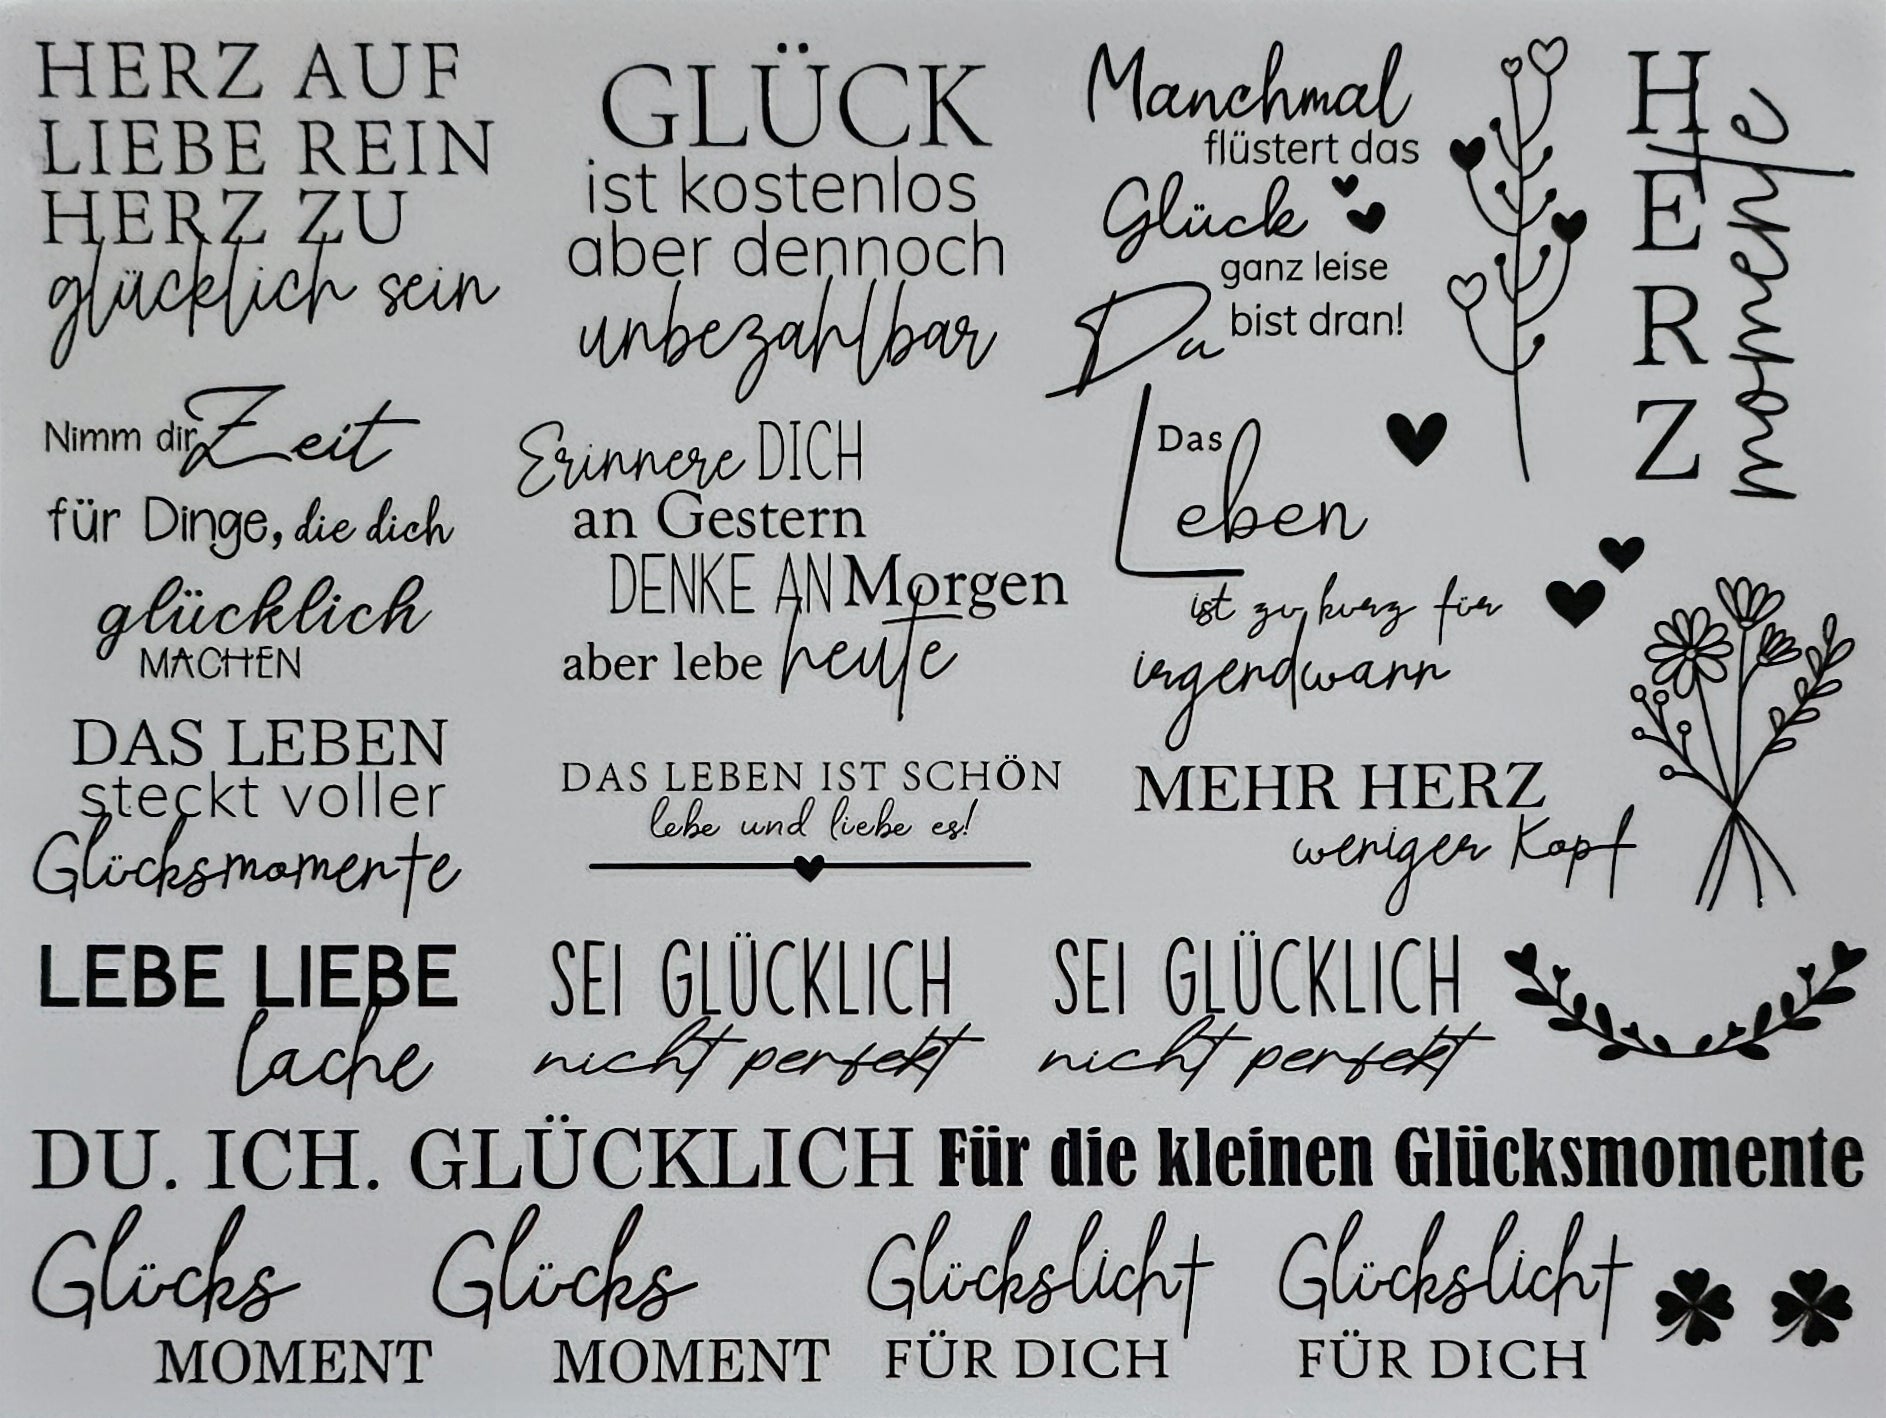 HERZ AUF
LIEBE REIN
HERZ ZU
glücklich sein
GLÜCK
ist kostenlos
aber dennoch
unbezahlbar
Manchmal
flüstert das
Glück
ganz leise
Du bist dran!
HERZ
momente
Nimm dir Zeit
für Dinge, die dich
glücklich
MACHEN
Erinnere DICH
an Gestern
DENKE AN Morgen
aber lebe heute
Das
Leben
ist zu kurz für
irgendwann
DAS LEBEN
steckt voller
Glücksmomente
DAS LEBEN IST SCHÖN
lebe und liebe es!
MEHR HERZ
weniger Kopf
LEBE LIEBE
lache
SEI GLÜCKLICH
nicht perfekt
SEI GLÜCKLICH
nicht perfekt
DU. ICH. GLÜCKLICH
Für die kleinen Glücksmomente
Glücks
MOMENT
Glücks
MOMENT
Glückslicht
FÜR DICH
Glückslicht
FÜR DICH